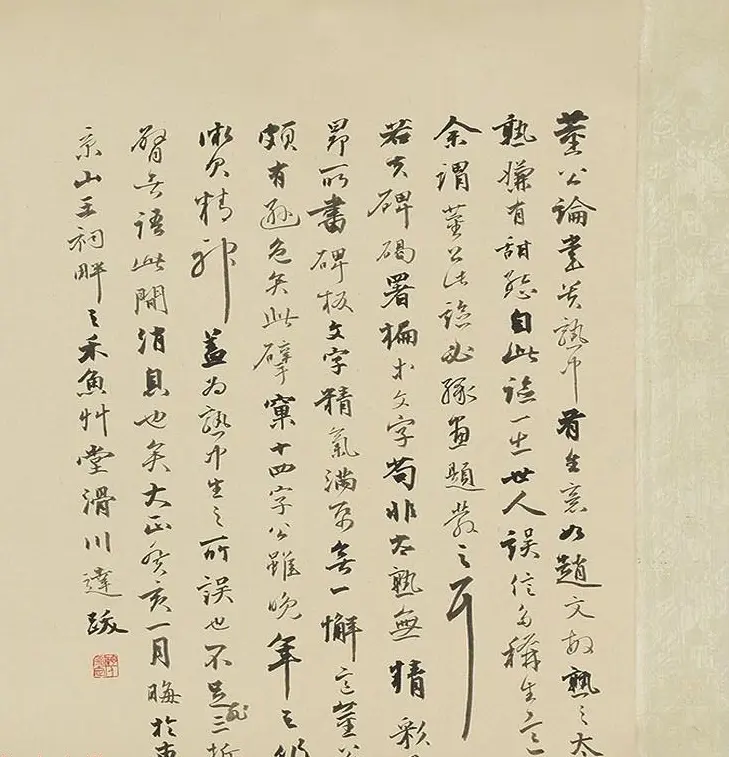 董公論書貴熟中有生意如趙文敏熟之太
熟嫌有甜態自此論一出世人誤信多稱生意
余謂董公此論必緣畫題發之耳
若夫碑碣署楄大文字苟非太熟無精彩
昂所書碑板文字精氣滿子無一懈意董公
頗有遜色矣此擘窠十四字公雖晚年之作
微欠精神蓋為熟中生之所誤也不足三折
臂與語此間消息也矣大正癸亥一月晦於東
京山王祠畔之禾魚艸堂滑川達跋